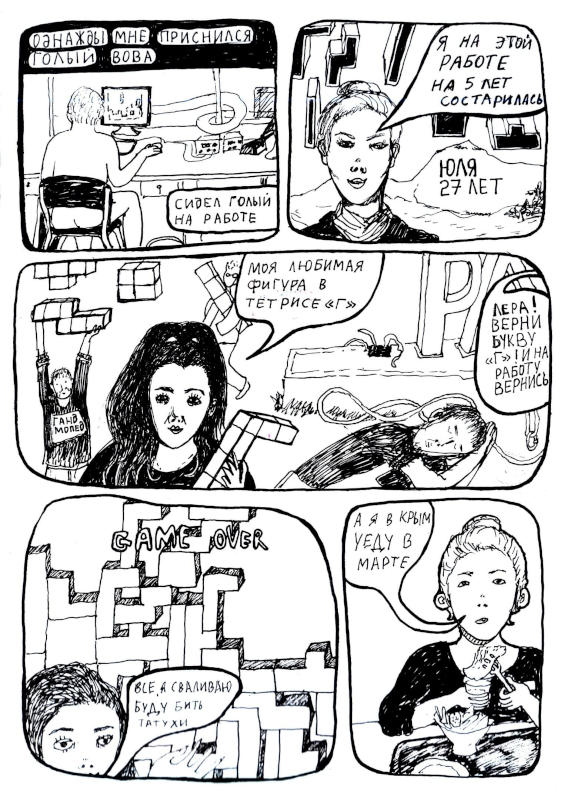 ОДНАЖДЫ МНЕ ПРИСНИЛСЯ
ГОЛЫЙ ВОВА
СИДЕЛ ГОЛЫЙ
НА РАБОТЕ
Я НА ЭТОЙ
РАБОТЕ
НА 5 ЛЕТ
СОСТАРИЛАСЬ
ЮЛЯ
27 ЛЕТ
МОЯ ЛЮБИМАЯ
ФИГУРА В
ТЕТРИСЕ «Г»
ЛЕРА!
ВЕРНИ
БУКВУ
«Г»! И НА
РАБОТУ
ВЕРНИСЬ
РА
GAME OVER
ВСЕ, Я СВАЛИВАЮ
БУДУ БИТЬ
ТАТУХИ
А Я В КРЫМ
УЕДУ В
МАРТЕ